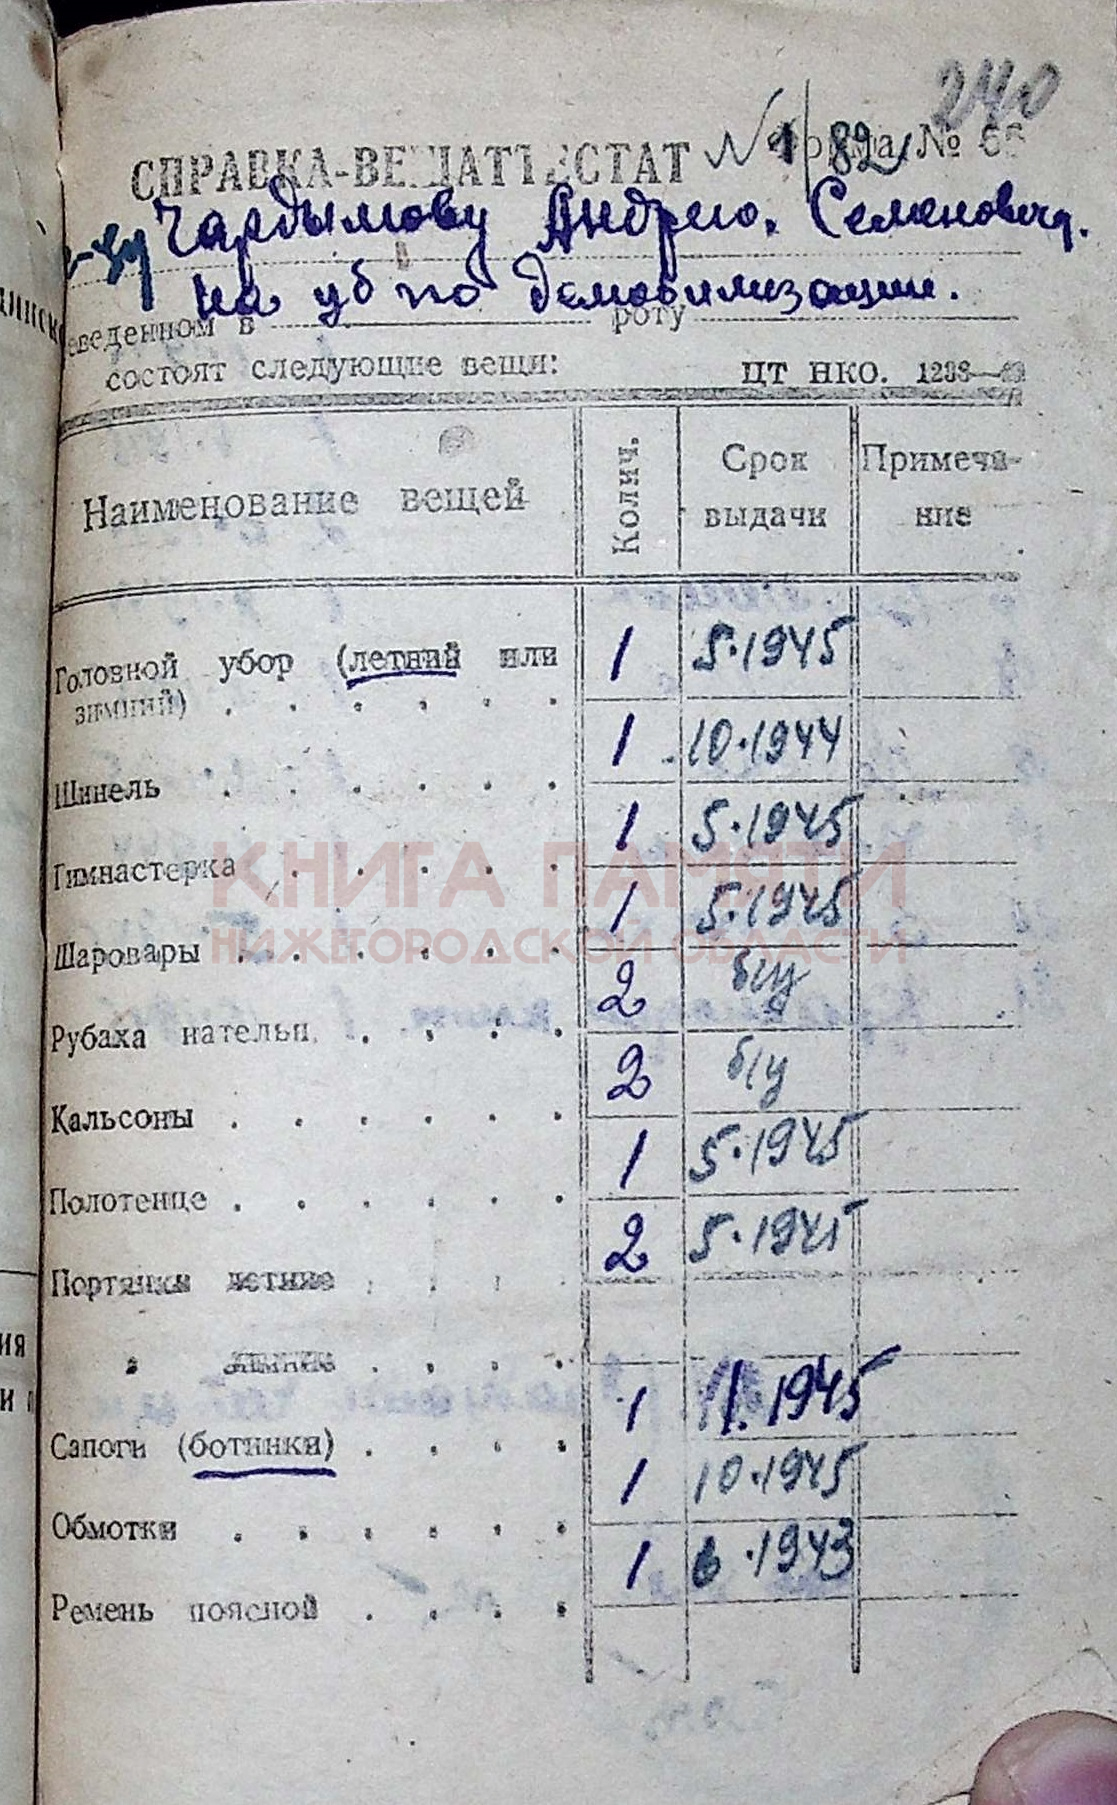 240
СПРАВКА-ВЕЩАТТЕСТАТ № 1/82 №
Чардымову Андрею. Семеновечу.
на уб по демобилизации.
еведенном в роту
состоят следующие вещи: ЦТ НКО. 1288—
Наименование вещей Колич. Срок выдачи Примеча-ние
Головной убор (летний или зимний) 1 5.1945
Шинель 1 10.1944
Гимнастерка 1 5.1945
Шаровары 1 5.1945
Рубаха нательн. 2 б/у
Кальсоны 2 б/у
Полотенце 1 5.1945
Портянки летние 2 5.1945
" зимние
Сапоги (ботинки) 1 11.1945
Обмотки 1 10.1945
Ремень поясной 1 6.1943
КНИГА ПАМЯТИ
НИЖЕГОРОДСКОЙ ОБЛАСТИ